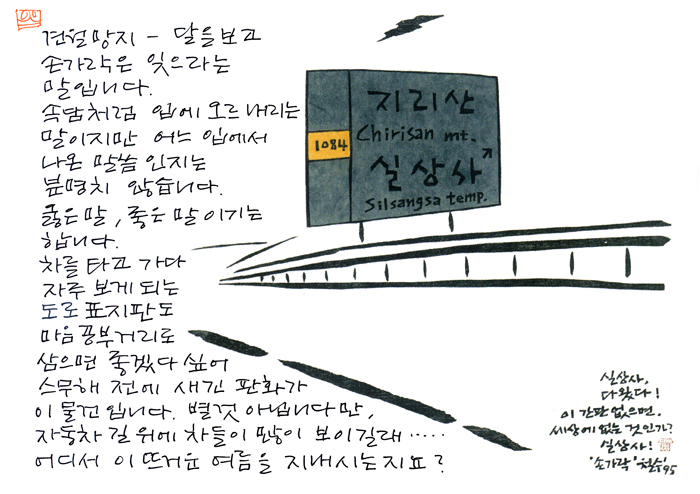 견월망지 - 달을 보고
손가락은 잊으라는
말입니다.
속담처럼 입에 오르내리는
말이지만 어느 입에서
나온 말씀인지는
분명치 않습니다.
옳은 말, 좋은 말이기는
합니다.
차를 타고 가다
자주 보게 되는
도로 표지판도
마음공부거리로
삼으면 좋겠다 싶어
스무해 전에 새긴 판화가
이 물건입니다. 별것 아닙니다만,
자동차 길 위에 차들이 많이 보이길래.....
어디서 이 뜨거운 여름을 지내시는지요?
지리산
Chirisan mt.
1084
실상사
Silsangsa temp.
실상사,
다 왔다!
이 간판 없으면,
세상에 없는 것인가?
실상사!
'손가락' 철수 95